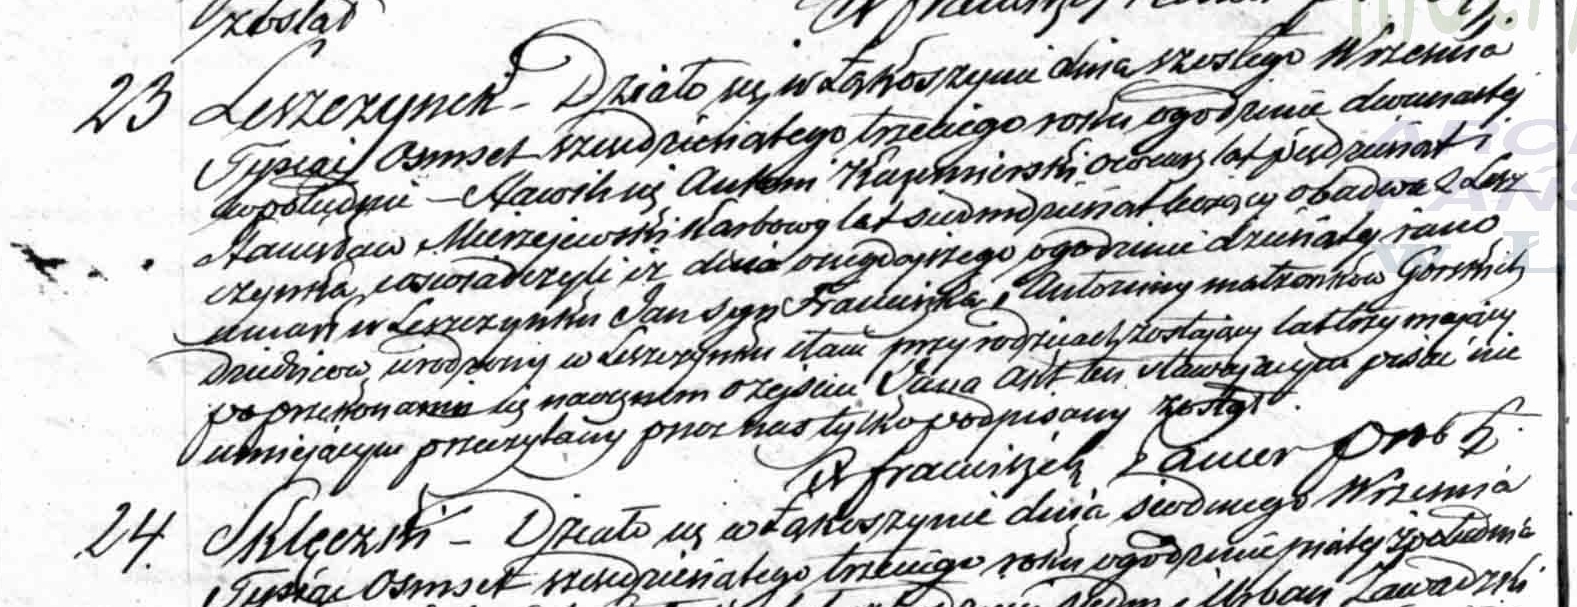 został
X Franciszek
23 Leszczynek – Działo się w Łąkoszynie dnia szóstego Września
Tysiąc Osmset sześćdziesiątego trzeciego roku o godzinie dwunastej
w południe – Stawili się Antoni Kazimierski lat pięćdziesiąt i
Stanisław Mierzejewski Karbowy lat siedmdziesiąt liczący obadwa z Lesz
czynka, i oświadczyli iż dnia onegdajszego o godzinie dziesiątej rano
umarł w Leszczynku Jan syn Franciszka i Antoniny małżonków Gorskich
Dziedziców, urodzony w Leszczynku i tam przy rodzicach zostający lat trzy mający
po przekonaniu się naocznem o zejściu Jana Akt ten stawającym pisać nie
umiejącym przeczytany przez nas tylko podpisany został.
X Franciszek Prob Ł.
24. Sklęczki – Działo się w Łąkoszynie dnia siodmego Września
Tysiąc Osmset sześćdziesiątego trzeciego roku o godzinie piątej z południa
i Urban Zawadzki